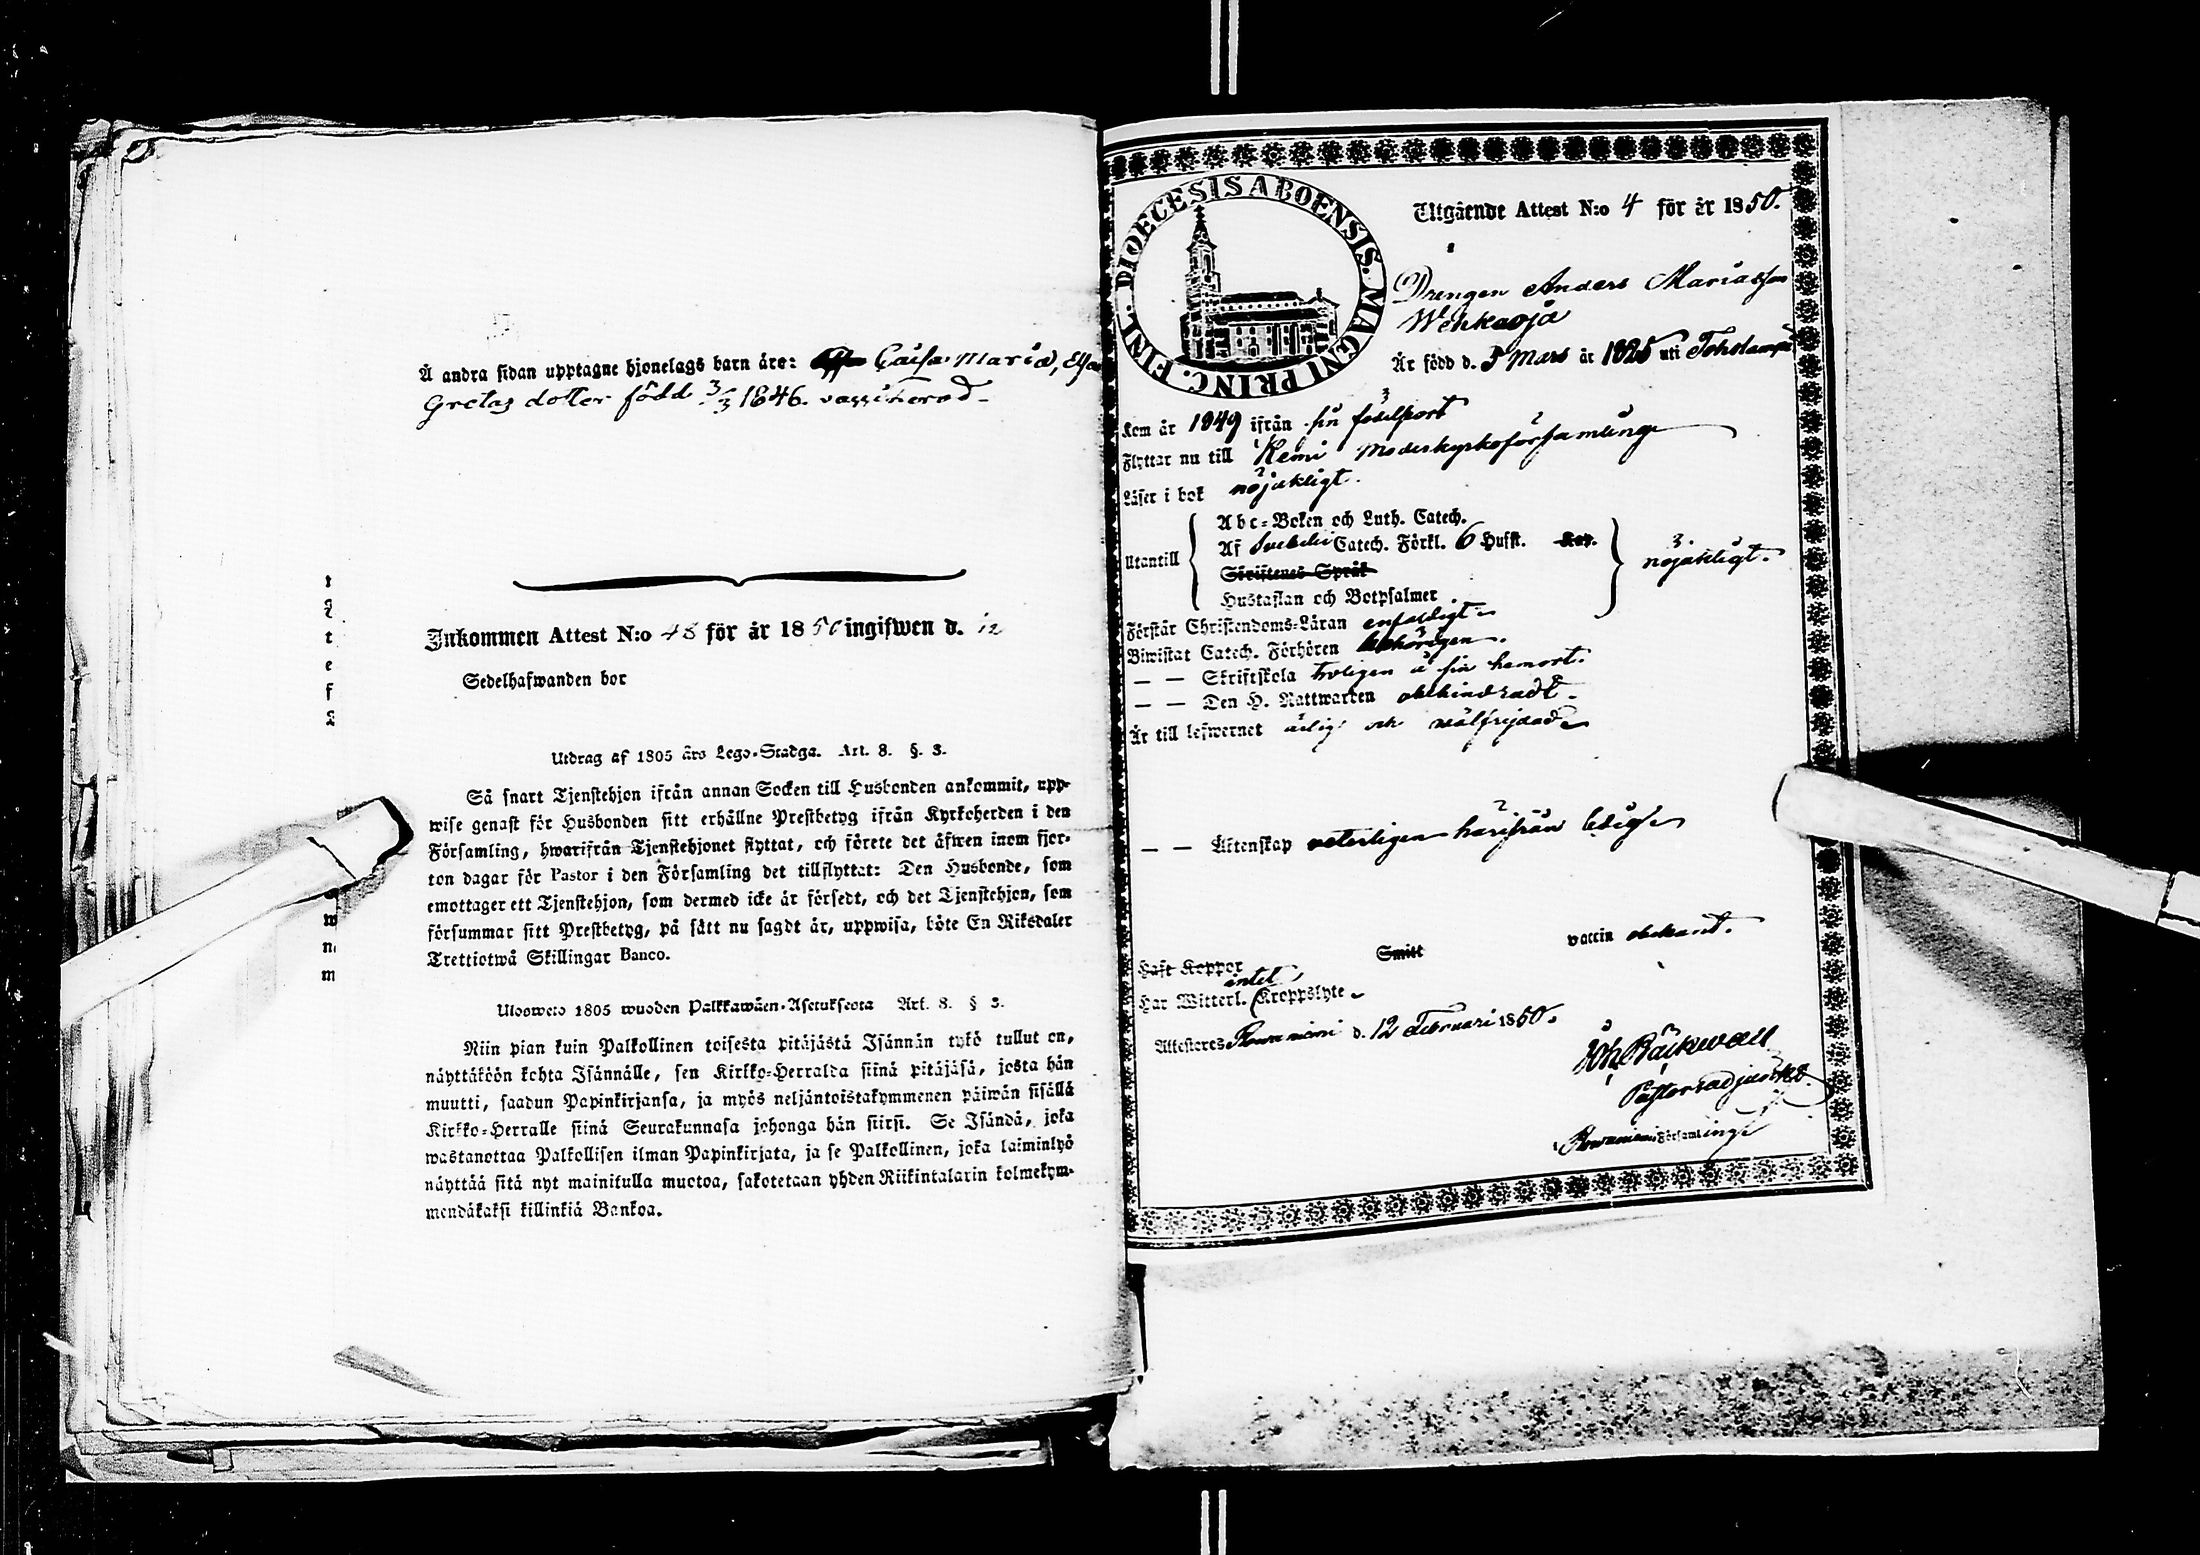 Å andra sidan upptagne hjonelags barn äro: Caisa Maria, Elsa
Gretas dotter född 3/3 1846. vaccinerad.
Inkommen Attest N:o 48 för år 1850 ingifwen d. 12
Sedelhafwanden bor
Utdrag af 1805 års Lego-Stadga. Art. 8. §. 3.
Så snart Tjenstehjon ifrån annan Socken till Husbonden ankommit, upp-
wise genast för Husbonden sitt erhållne Prestbetyg ifrån Kyrkoherden i den
Församling, hwarifrån Tjenstehjonet flyttat, och förete det äfwen inom fjor-
ton dagar för Pastor i den Församling det tillflyttat: Den Husbonde, som
emottager ett Tjenstehjon, som dermed icke är försedt, och det Tjenstehjon, som
försummar sitt Prestbetyg, på sätt nu sagdt är, uppwisa, böte En Riksdaler
Trettiotwå Skillingar Banco.
Uloswеto 1805 wuoden Palkkawäen-Asetuksesta Art. 8. § 3.
Niin pian kuin Palkollinen toisesta pitäjästä Isännän tykö tullut on,
näyttäköön kohta Isännälle, sen Kirkko-Herralda siinä pitäjäsä, josta hän
muutti, saadun Papinkirjansa, ja myös neljäntoistakymmenen päiwän sisällä
Kirkko-Herralle siinä Seurakunnasa johonga hän siirsi. Se Isändä, joka
wastanottaa Palkollisen ilman Papinkirjata, ja se Palkollinen, joka laiminlyö
näyttää sitä nyt mainitulla muotoa, sakotetaan yhden Riikintalarin kolmekym-
mendäkaksi killinkiä Bankoa.
DIOECESIS ABOENSIS. MAGNI PRINC. FINL.
Utgående Attest N:o 4 för år 1850.
Drengen Anders Mariasson
Wehkaoja
Är född d. 5 Mars år 1825 uti Toholampi
Kom år 1849 ifrån sin födelseort
Flyttar nu till Kemi Moderkyrkoförsamling
Läser i bok nöjaktligt.
Utantill
Abc-Boken och Luth. Catech.
Af Svebelii Catech. Förkl. 6 Hufst. Kap.
Skriftenes Språk
Hustaflan och Botpsalmer
nöjaktligt.
Förstår Christendoms-Läran enfaldigt
Biwistat Catech. Förhören behörigen.
— — Skriftskola troligen å sin hemort.
— — Den H. Nattwarden obehindradt.
Är till lefwernet ärlig och wälfrejdad
— — Äktenskap veterligen härifrån ledig
Haft Koppor Smitt vaccin obekant.
Har Witterl. intet Kroppslyte
Attesteres Rowaniemi d. 12 Februari 1850.
Joh Bäckwall
Pastorsadjunkt
Rowaniemi Församling